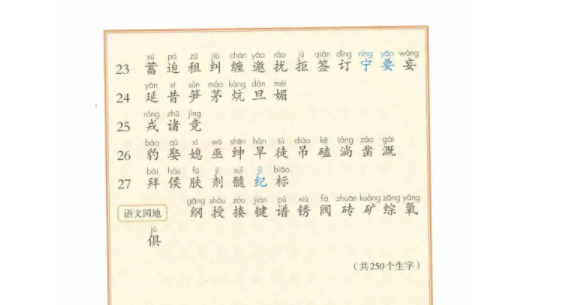 xù pò zū jiū chán yāo rǎo jù qiān dìng nìng yāo wàng
23 蓄 迫 租 纠 缠 邀 扰 拒 签 订 宁 要 妄
yán xī sǔn máo kàng dàn mèi
24 延 昔 笋 茅 炕 旦 媚
róng zhū jìng
25 戎 诸 竞
bào qǔ xí wū shēn hàn tú diào kē tǎng záo gài
26 豹 娶 媳 巫 绅 旱 徒 吊 磕 淌 凿 溉
bài hóu fū jì suǐ jì biāo
27 拜 侯 肤 剂 髓 纪 标
gāng shòu zòu jiàn pǔ xiù fá zhuān kuàng zōng yǎng
语文园地 纲 授 揍 键 谱 锈 阀 砖 矿 综 氧
jù
俱
（共250个生字）